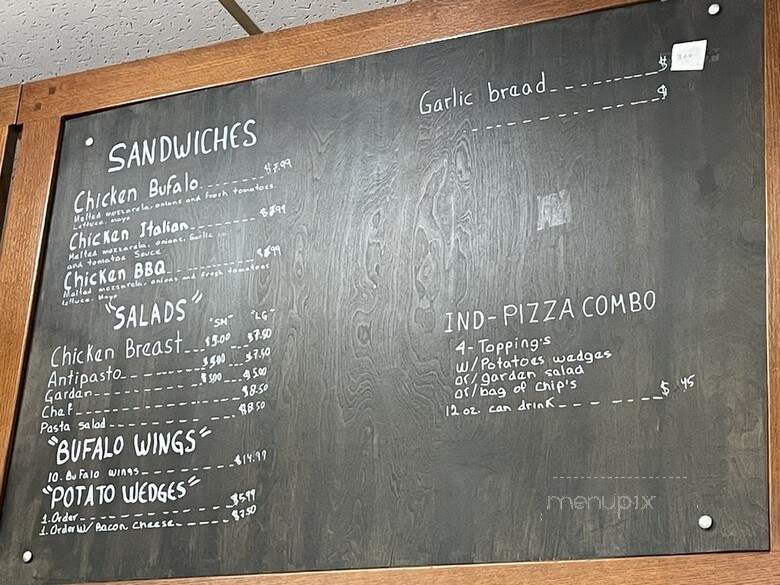 SANDWICHES
Chicken Bufalo
Melted mozzarela, onions and fresh tomatoes.
Lettuce, mayo
Chicken Italian
Melted mozzarela, onions, Garlic
and tomatoe Sauce
Chicken BBQ
Melted mozzarela, onions and fresh tomatoes
lettuce. Mayo
"SALADS" "SM" "LG"
Chicken Breast $5.00 $7.50
Antipasto $5.00 $7.50
Garden $5.00
Chef $8.50
Pasta Salad $8.50
"BUFALO WINGS"
10. Bufalo wings $14.99
"POTATO WEDGES"
1. Order $5.99
1. Order w/ Bacon Cheese $7.50
Garlic bread $
$
IND-PIZZA COMBO
4-Topping's
w/Potatoes wedges
or/garden salad
or/bag of chip's
12 oz. can drink $ .45
menupix